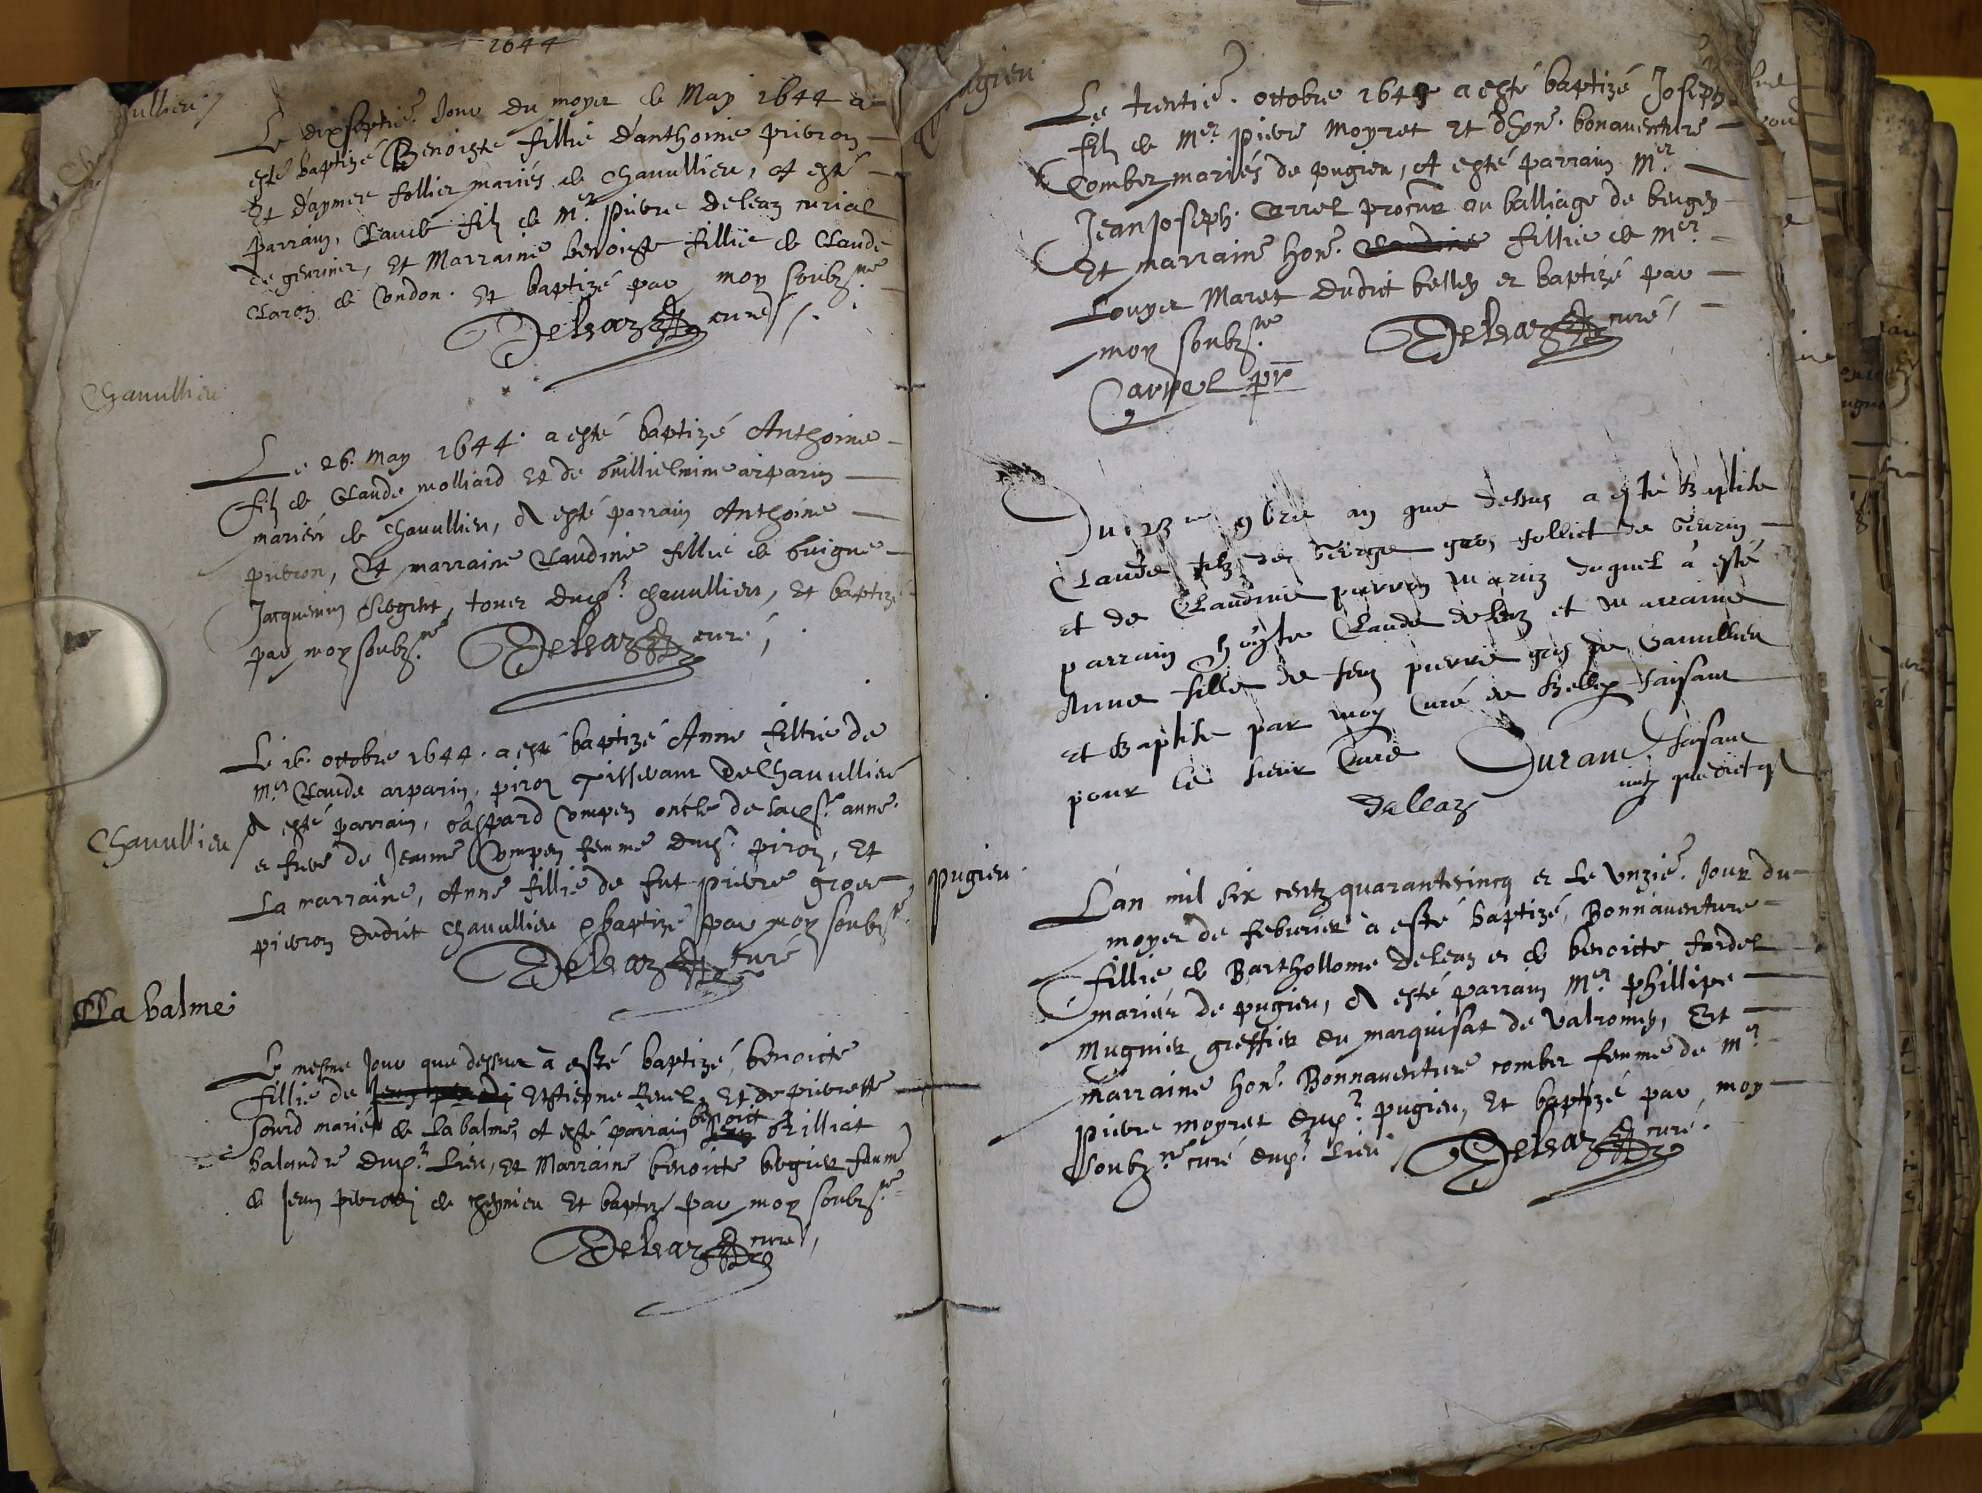 1644
Le dixseptie. Jour du moys de May 1644 a
esté baptizé Benoiste fillie d'anthoine pierron
Et d'aymee follier mariés de Chavullieu, A esté
parrain, Claude filz de Mer. pierre deleaz curial
de geurier, Et Marraine benoiste fillie de Claude
Claron de Condon. Et baptizé par moy soubzsne.
Deleaz curé
Chavullieu
Le 26. May 1644. a esté baptizé Anthoine
filz de Claude molliard Et de Guillielmine arparin
mariés de Chavullieu, A esté parrain Anthoine
pierron, Et marraine Claudine fillie de Guigue
Jacquemin, touts dudt. Chavullieu, Et baptizé
par moy soubzne. Deleaz curé
Le 16. octobre 1644. a esté baptizé Anne fillie de
mer Claude arparin, piron Tisserant De Chavullieu
A esté parrain, Gaspard Compen oncle de ladte. anne
Chavullieu
et frere de Jeanne Compen femme dudt. piron, Et
La marraine, Anne fillie de fut pierre gros
pierron dudit Chavullieu & baptizé par moy soubzne.
Deleaz curé
La balme
Le mesme Jour que dessus à esté baptizé, benoicte
fillie de Estiepne Revel, Et de pierrette
Sourd mariés de La balme, A esté parrain benoit brilliat
balandre dudt. Lieu, Et Marraine benoicte begier feme
de Jean pierron de cheynieu Et baptizé par moy soubzsne.
Deleaz curé
pugieu
Le trentie. octobre 1644 a esté baptizé Joseph
filz de Mer. pierre Moyret Et d'hone. bonaventure
Comber mariés de pugieu, A esté parrain Mer.
Jean Joseph. Carrel procur au balliage de beugey
Et marraine hone. Claudine fillie de Mer.
Louys Maret dudit belley et baptizé par
moy soubzne. Deleaz curé
Carrel pr
Du 13me 9bre an que dessus a esté Baptise
Claude filz de George gros follict de Geurin
et de Claudine pierron Mariz duquel à esté
parrain Claude deleaz et Marraine
Anne fille de feu pierre gros de Cavullieu
et Baptise par moy Curé de Belley faisant
pour le sieur Curé Durant faisant
Deleaz
pugieu
L'an mil six centz quarantecincq et Le Unzie. Jour du
moys de febvrier à esté baptizé, Bonnaventure
fillie de Barthollome deleaz et de benoicte fardel
mariés de pugieu, A esté parrain Mer. phillipe
Mugnier greffier du marquisat de Valromey, Et
marraine hone. Bonnaventure comber femme de Mer.
pierre moyret dudt. pugieu, Et baptizé par moy
soubzne. curé dudt. Lieu Deleaz curé.